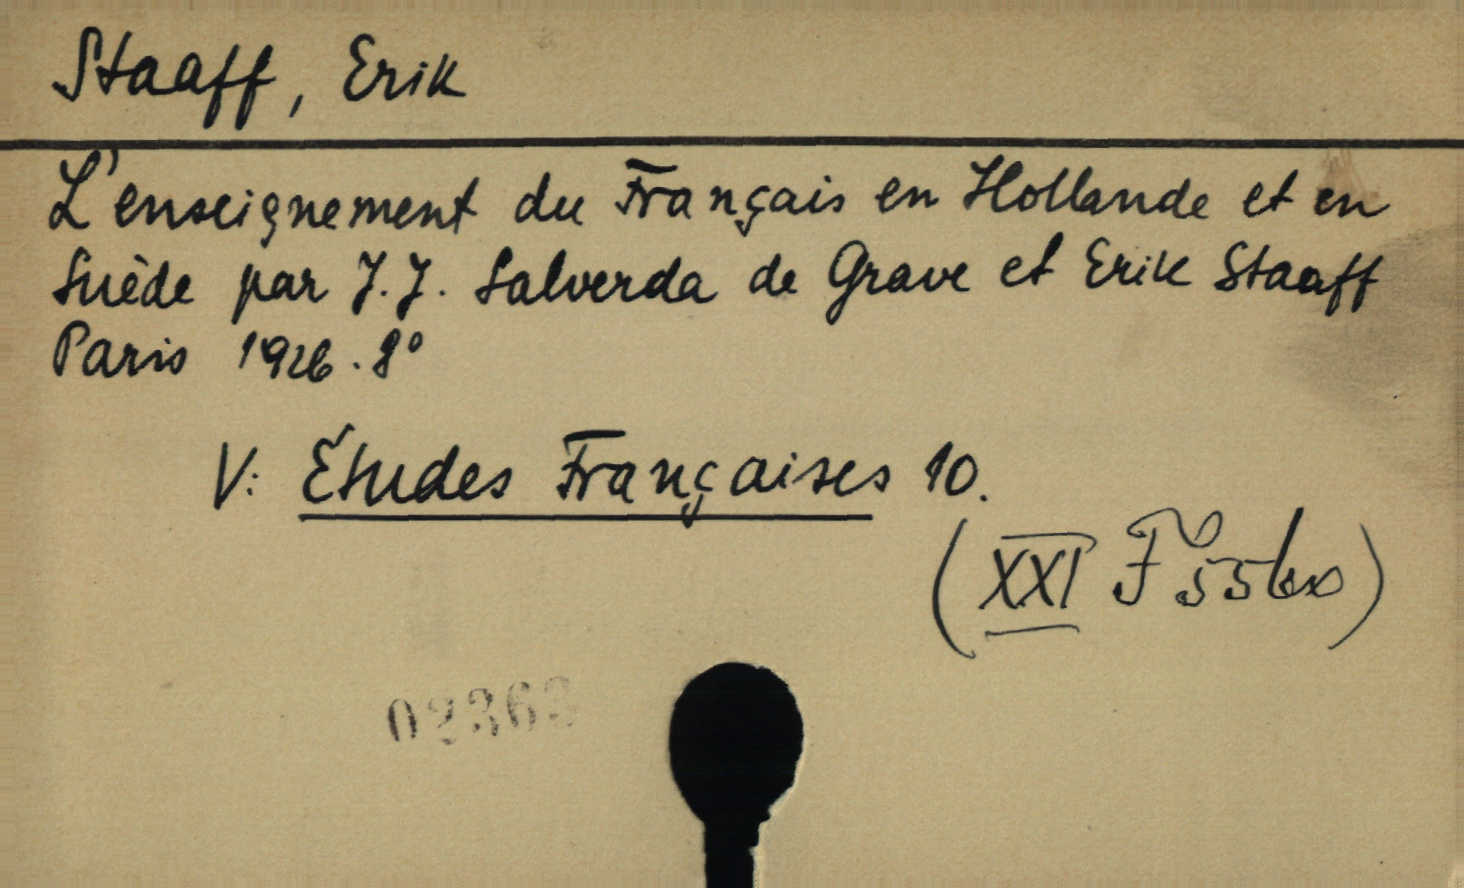 Staaff, Erik
L'enseignement du Français en Hollande et en
Suède par J.J. Salverda de Grave et Erik Staaff
Paris 1926. 8°
V: Études Françaises 10.
(XXI F 55
02363